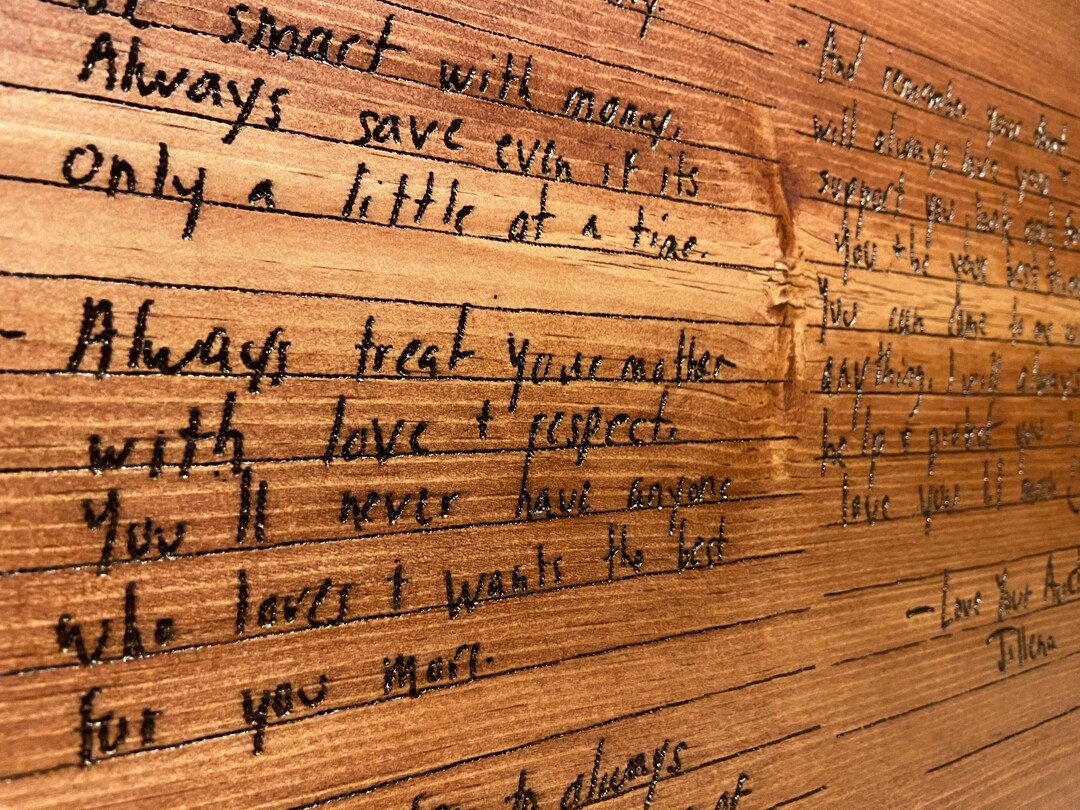 smart with money.
Always save even if its
only a little at a time.
- Always treat your mother
with love + respect.
You'll never have anyone
who loves + wants the best
for you more.
to always
- And remember your Aunt
will always love you +
support you back and
You + be your best friend
You can come to me
anything. I will always
help + protect you
love you lil man
- Love Your Aunt
Jillena